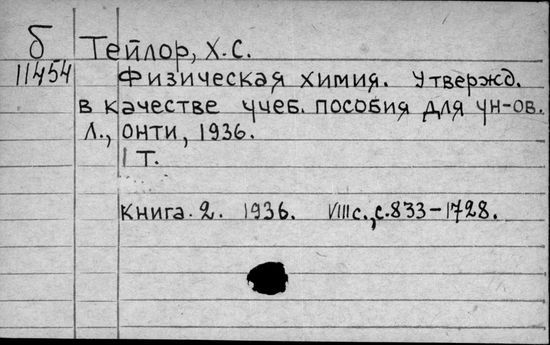 б Тейлор, Х.С.
11454 Физическая химия. Утвержд.
в качестве учеб. пособия для ун-ов.
Л., ОНТИ, 1936.
1 т.
Книга. 2. 1936. VIII с., с. 833-1728.